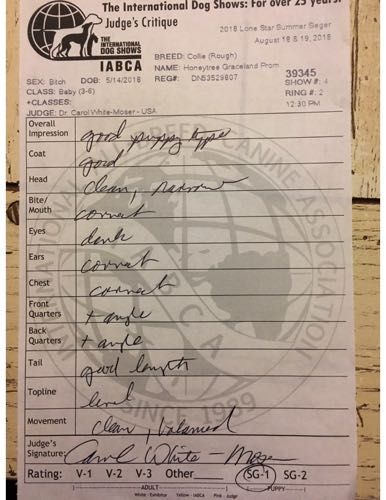 The International Dog Shows: For over 25 years!
Judge's Critique
2018 Lone Star Summer Sieger
August 18 & 19, 2018
THE
INTERNATIONAL
DOG SHOWS
IABCA
BREED: Collie (Rough)
NAME: Honeytree Graceland Prom
SEX: Bitch DOB: 5/14/2018 REG#: DN53529807
39345
CLASS: Baby (3-6) SHOW #: 4
+CLASSES: RING #: 2
JUDGE: Dr. Carol White-Moser - USA 12:30 PM
Overall
Impression good puppy type
Coat good
Head clean, narrow
Bite/
Mouth correct
Eyes dark
Ears correct
Chest correct
Front
Quarters + angle
Back
Quarters + angle
Tail good length
Topline level
Movement clean, balanced
Judge's
Signature: Carol White-Moser
Rating: V-1 V-2 V-3 Other SG-1 SG-2
ADULT PUPPY
White - Exhibitor Yellow - IABCA Pink - Judge
INTERNATIONAL ALL BREED CANINE ASSOCIATION
IABCA
SINCE 1989